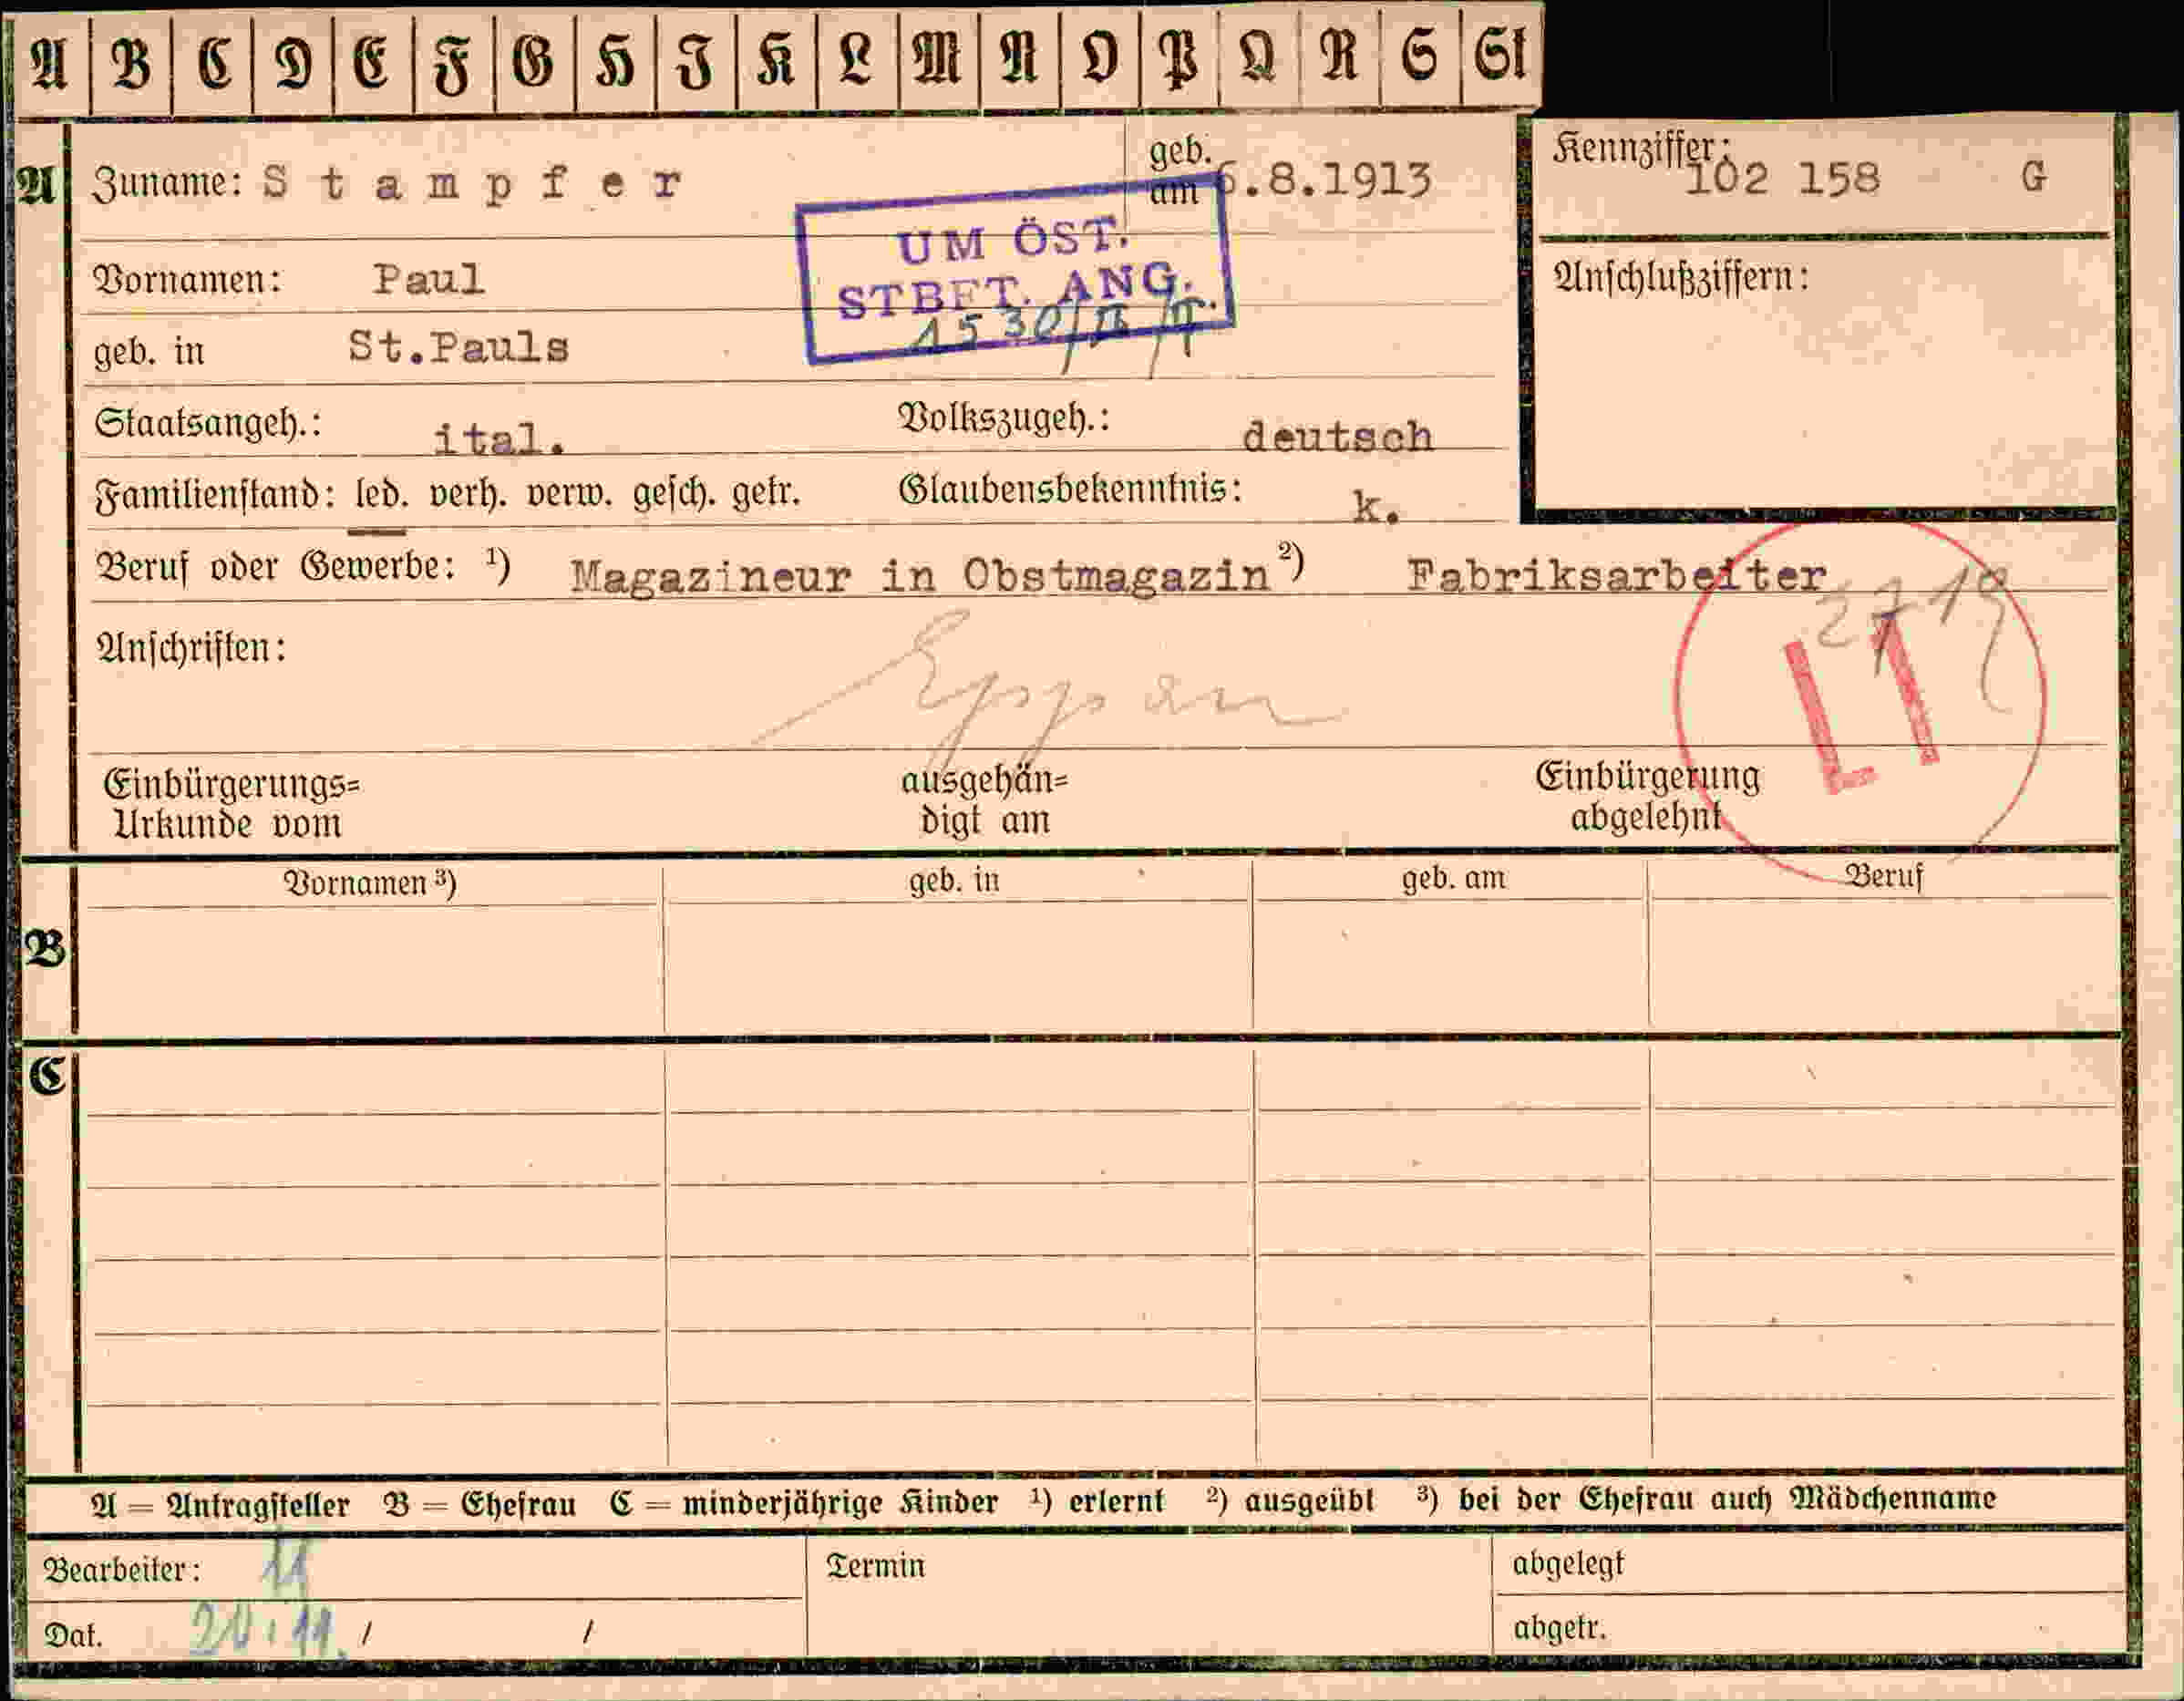 A B C D E F G H I K L M N O P Q R S St
A Zuname: Stampfer geb. am 6.8.1913 Kennziffer: 102 158 G
UM ÖST.
STBFT. ANG.
1530/II/
Vornamen: Paul Anschlußziffern:
geb. in St.Pauls
Staatsangeh.: ital. Volkszugeh.: deutsch
Familienstand: led. verh. verw. gesch. getr. Glaubensbekenntnis: k.
Beruf oder Gewerbe: ¹) Magazineur in Obstmagazin ²) Fabriksarbeiter
2719
Anschriften: Eppan
LI
Einbürgerungs= Urkunde vom ausgehän= digt am Einbürgerung abgelehnt
Vornamen ³) geb. in geb. am Beruf
B
C
A = Antragsteller B = Ehefrau C = minderjährige Kinder ¹) erlernt ²) ausgeübt ³) bei der Ehefrau auch Mädchenname
Bearbeiter: Termin abgelegt
Dat. / / abgetr.